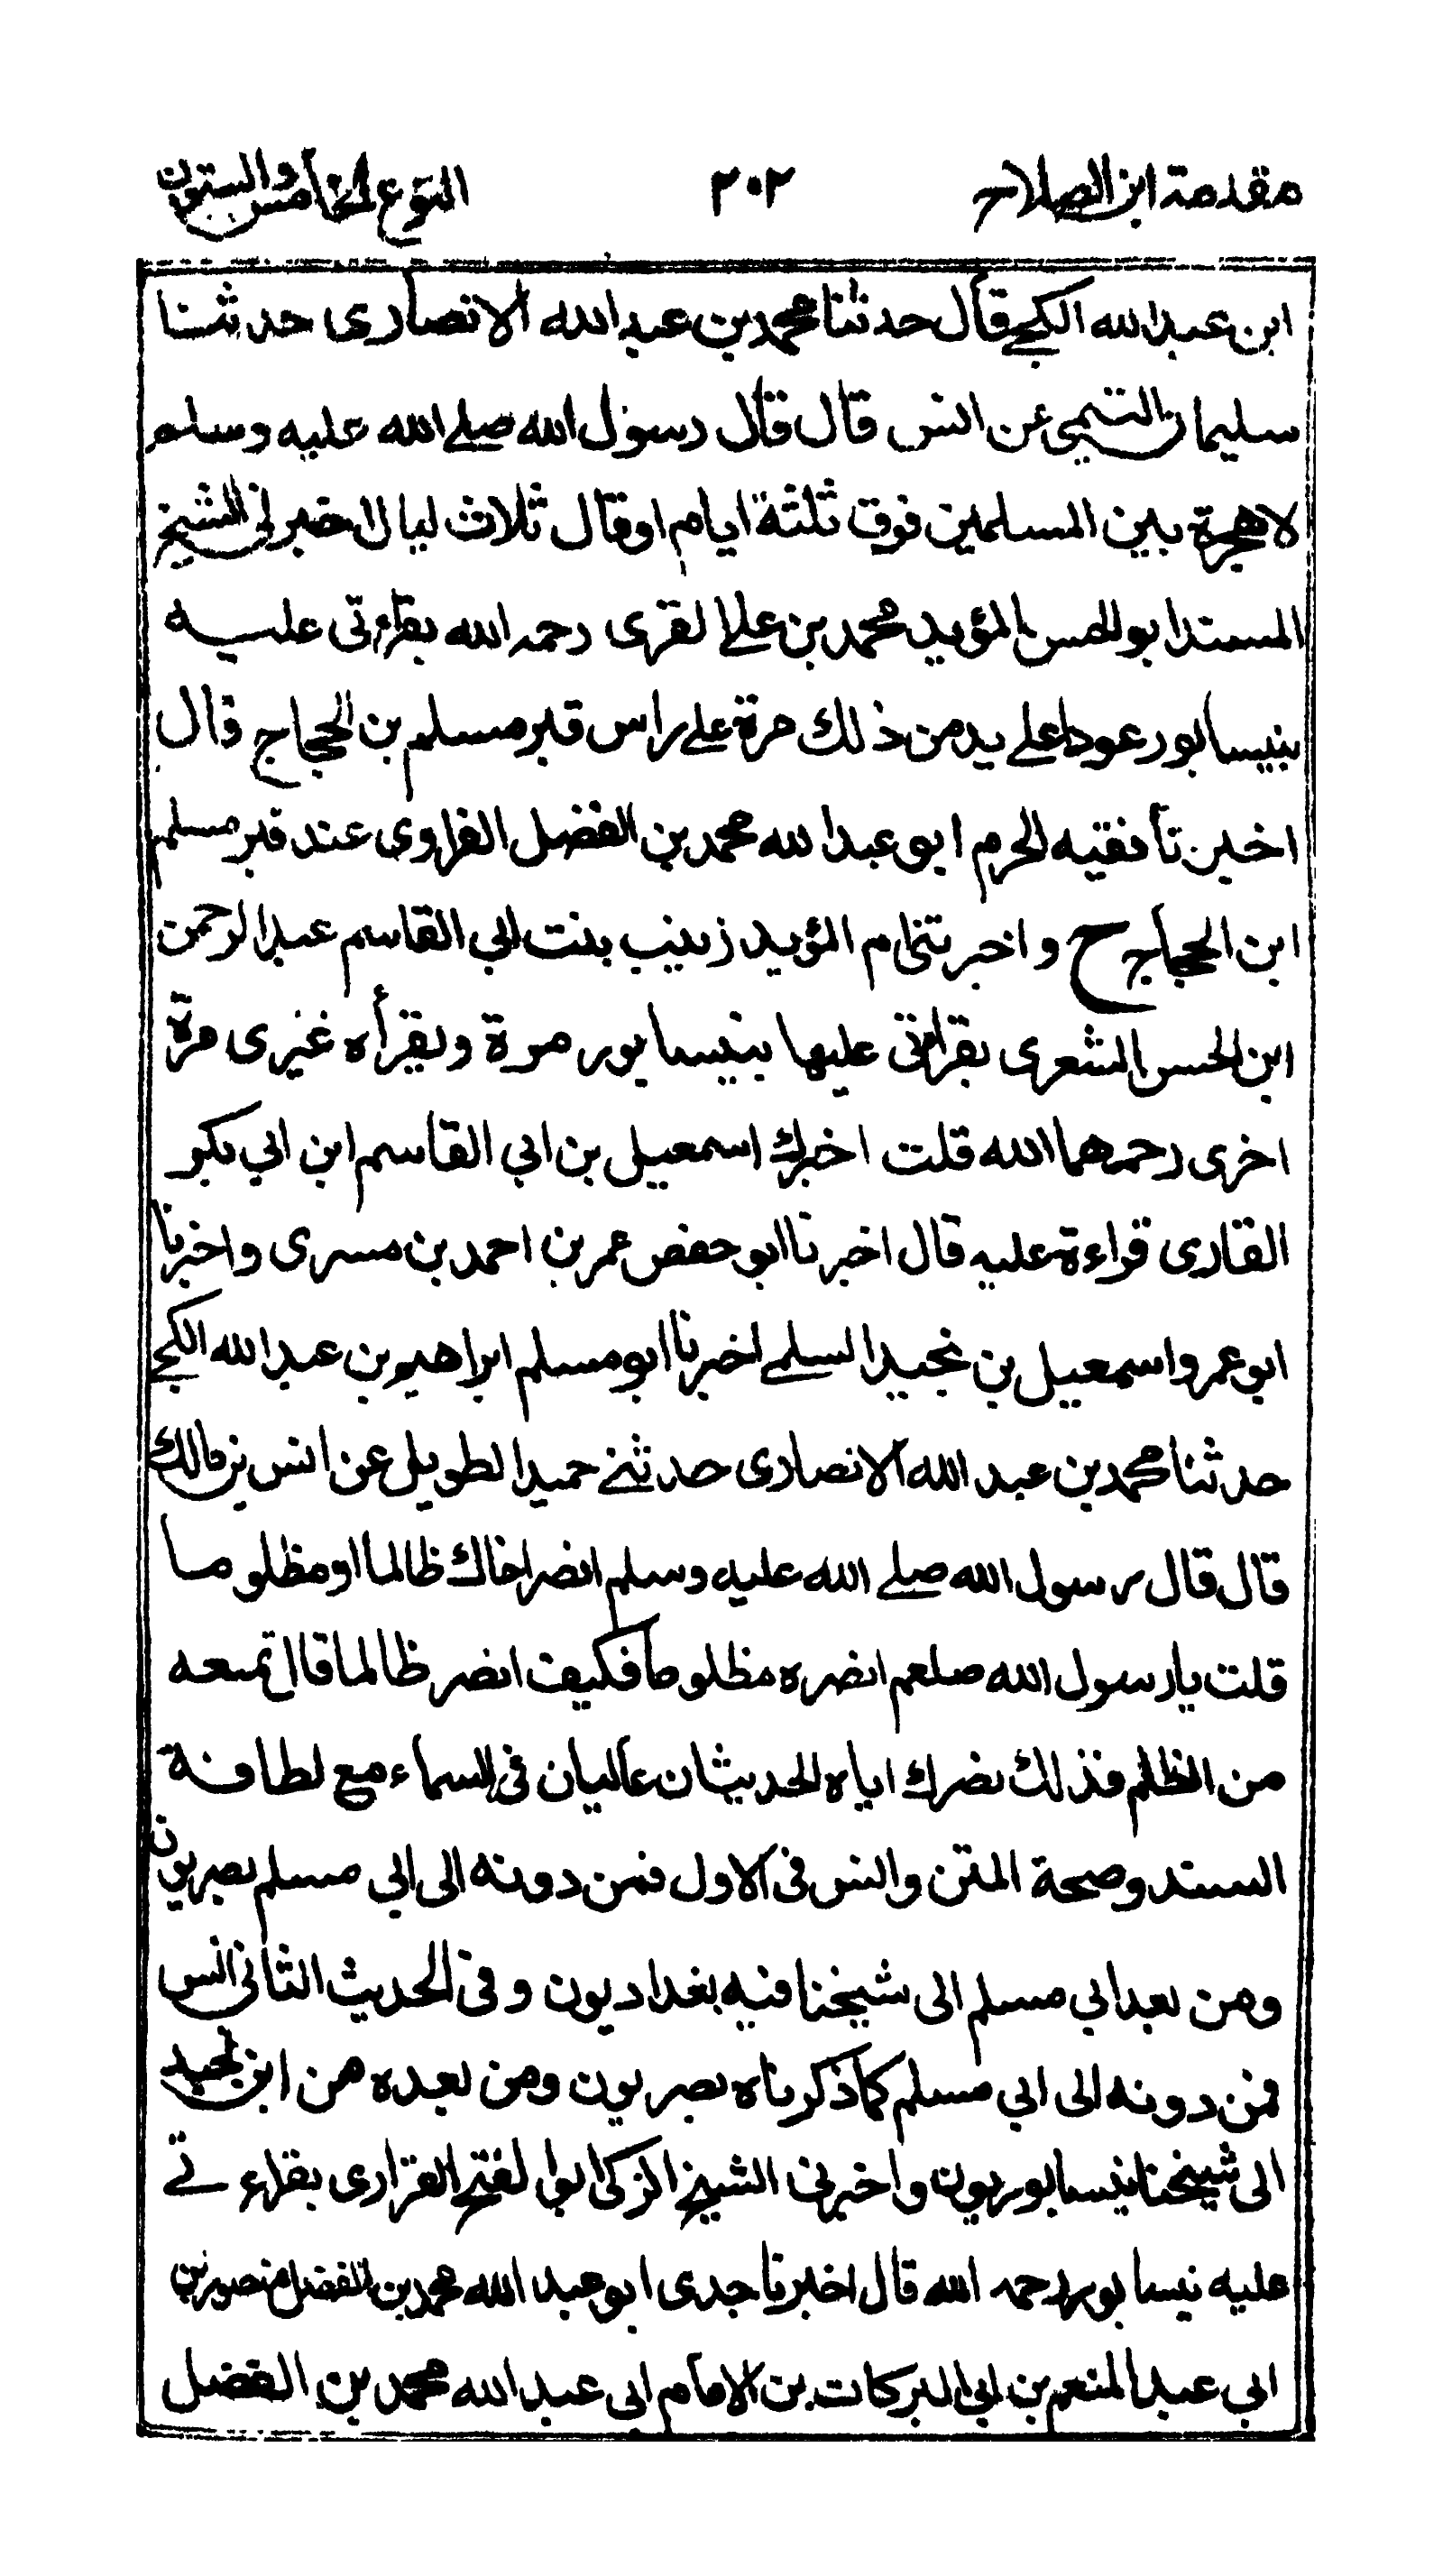 مقدمة ابن الصلاح ٢٠٢ النوع الخامس والستون
ابن عبدالله الكجي قال حدثنا محمد بن عبدالله الانصاري حدثنا
سليمان التيمي عن انس قال قال رسول الله صلے الله عليه وسلم
لاهجرة بين المسلمين فوق ثلثة ايام او قال ثلاث ليال اخبرني الشيخ
المسند ابو الحسن المؤيد محمد بن علے المقرى رحمه الله بقراءتي عليه
بنيسابور عودا علے يد من ذلك مرة علے راس قبر مسلم بن الحجاج قال
اخبرنا فقيه الحرم ابو عبدالله محمد بن الفضل الفراوى عند قبر مسلم
ابن الحجاج ح واخبرتني ام المؤيد زينب بنت ابي القاسم عبدالرحمن
ابن الحسن الشعرى بقراءتي عليها بنيسابور مرة وبقرأه غيرى مرة
اخرى رحمهما الله قلت اخبرك اسمعيل بن ابي القاسم ابن ابي بكر
القارى قراءة عليه قال اخبرنا ابو حفص عمر بن احمد بن مسرى واخبرنا
ابو عمرو اسمعيل بن نجيد السلمے اخبرنا ابو مسلم ابراهيم بن عبدالله الكجے
حدثنا محمد بن عبد الله الانصارى حدثنے حميد الطويل عن انس بن مالك
قال قال رسول الله صلے الله عليه وسلم انصر اخاك ظالما او مظلوما
قلت يا رسول الله صلعم انصره مظلوما فكيف انصر ظالما قال تمنعه
من الظلم فذلك نصرك اياه الحديثان عاليان فى السماء مع لطافة
السند وصحة المتن وانس فى الاول فمن دونه الى ابي مسلم بصريون
ومن بعد ابي مسلم الى شيخنا فيه بغداديون وفى الحديث الثانى انس
فمن دونه الى ابي مسلم كما ذكرناه بصريون ومن بعده من ابن نجيد
الى شيخنا نيسابوريون واخبرنى الشيخ الزكى ابو الفتح الفزارى بقراءتے
عليه نيسابور رحمه الله قال اخبرنا جدى ابو عبد الله محمد بن الفضل منصور بن
ابي عبد المنعم بن ابي البركات بن الامام ابى عبد الله محمد بن الفضل